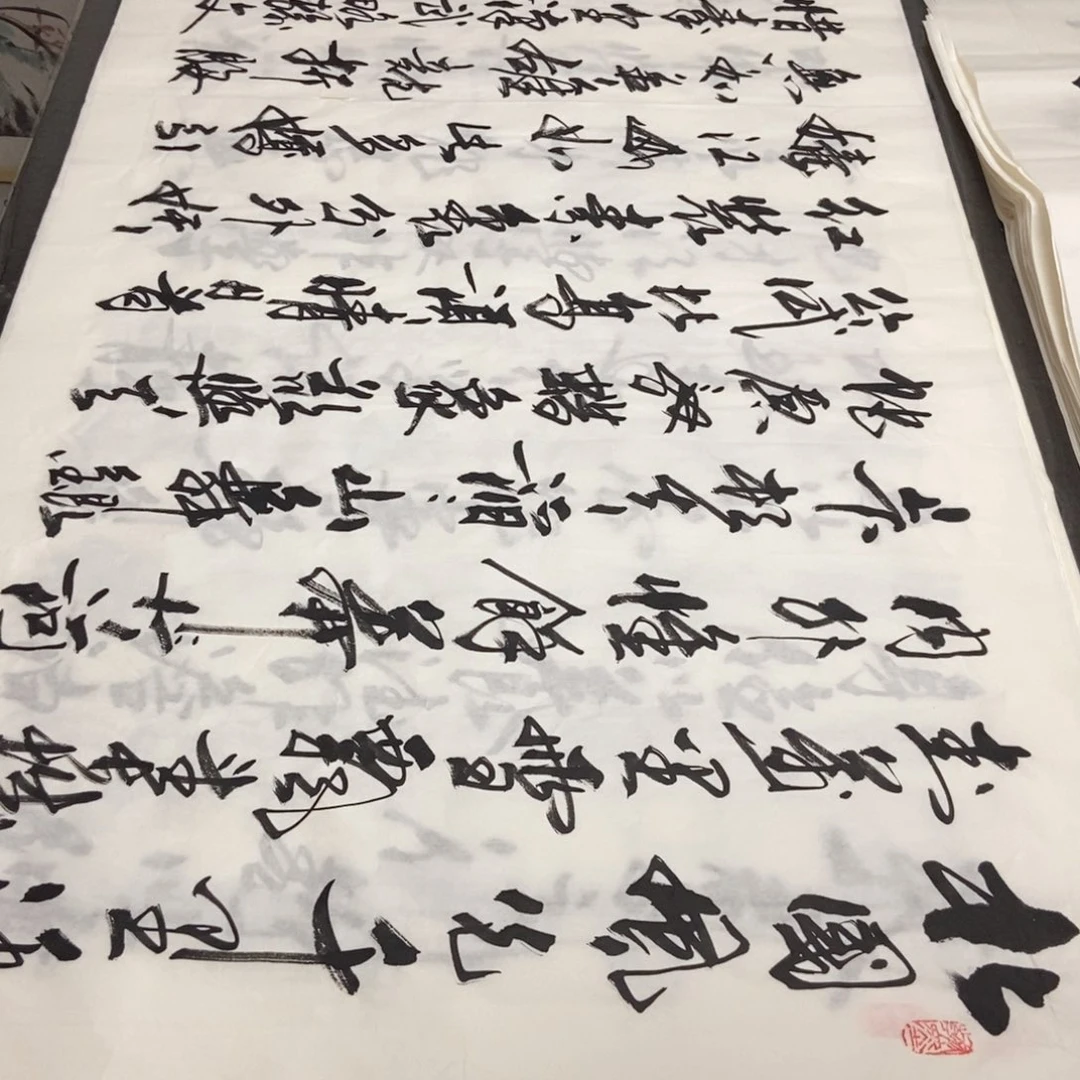 北國風光千里冰
封萬里雪飄望長
内外惟餘莽大河
上下頓失滔山舞銀
蛇原馳蠟象欲與天公
試比高須晴日看
紅裝素裹分外妖
嬈江山如此多嬌引
無數英雄競折腰
惜秦皇漢武略輸文